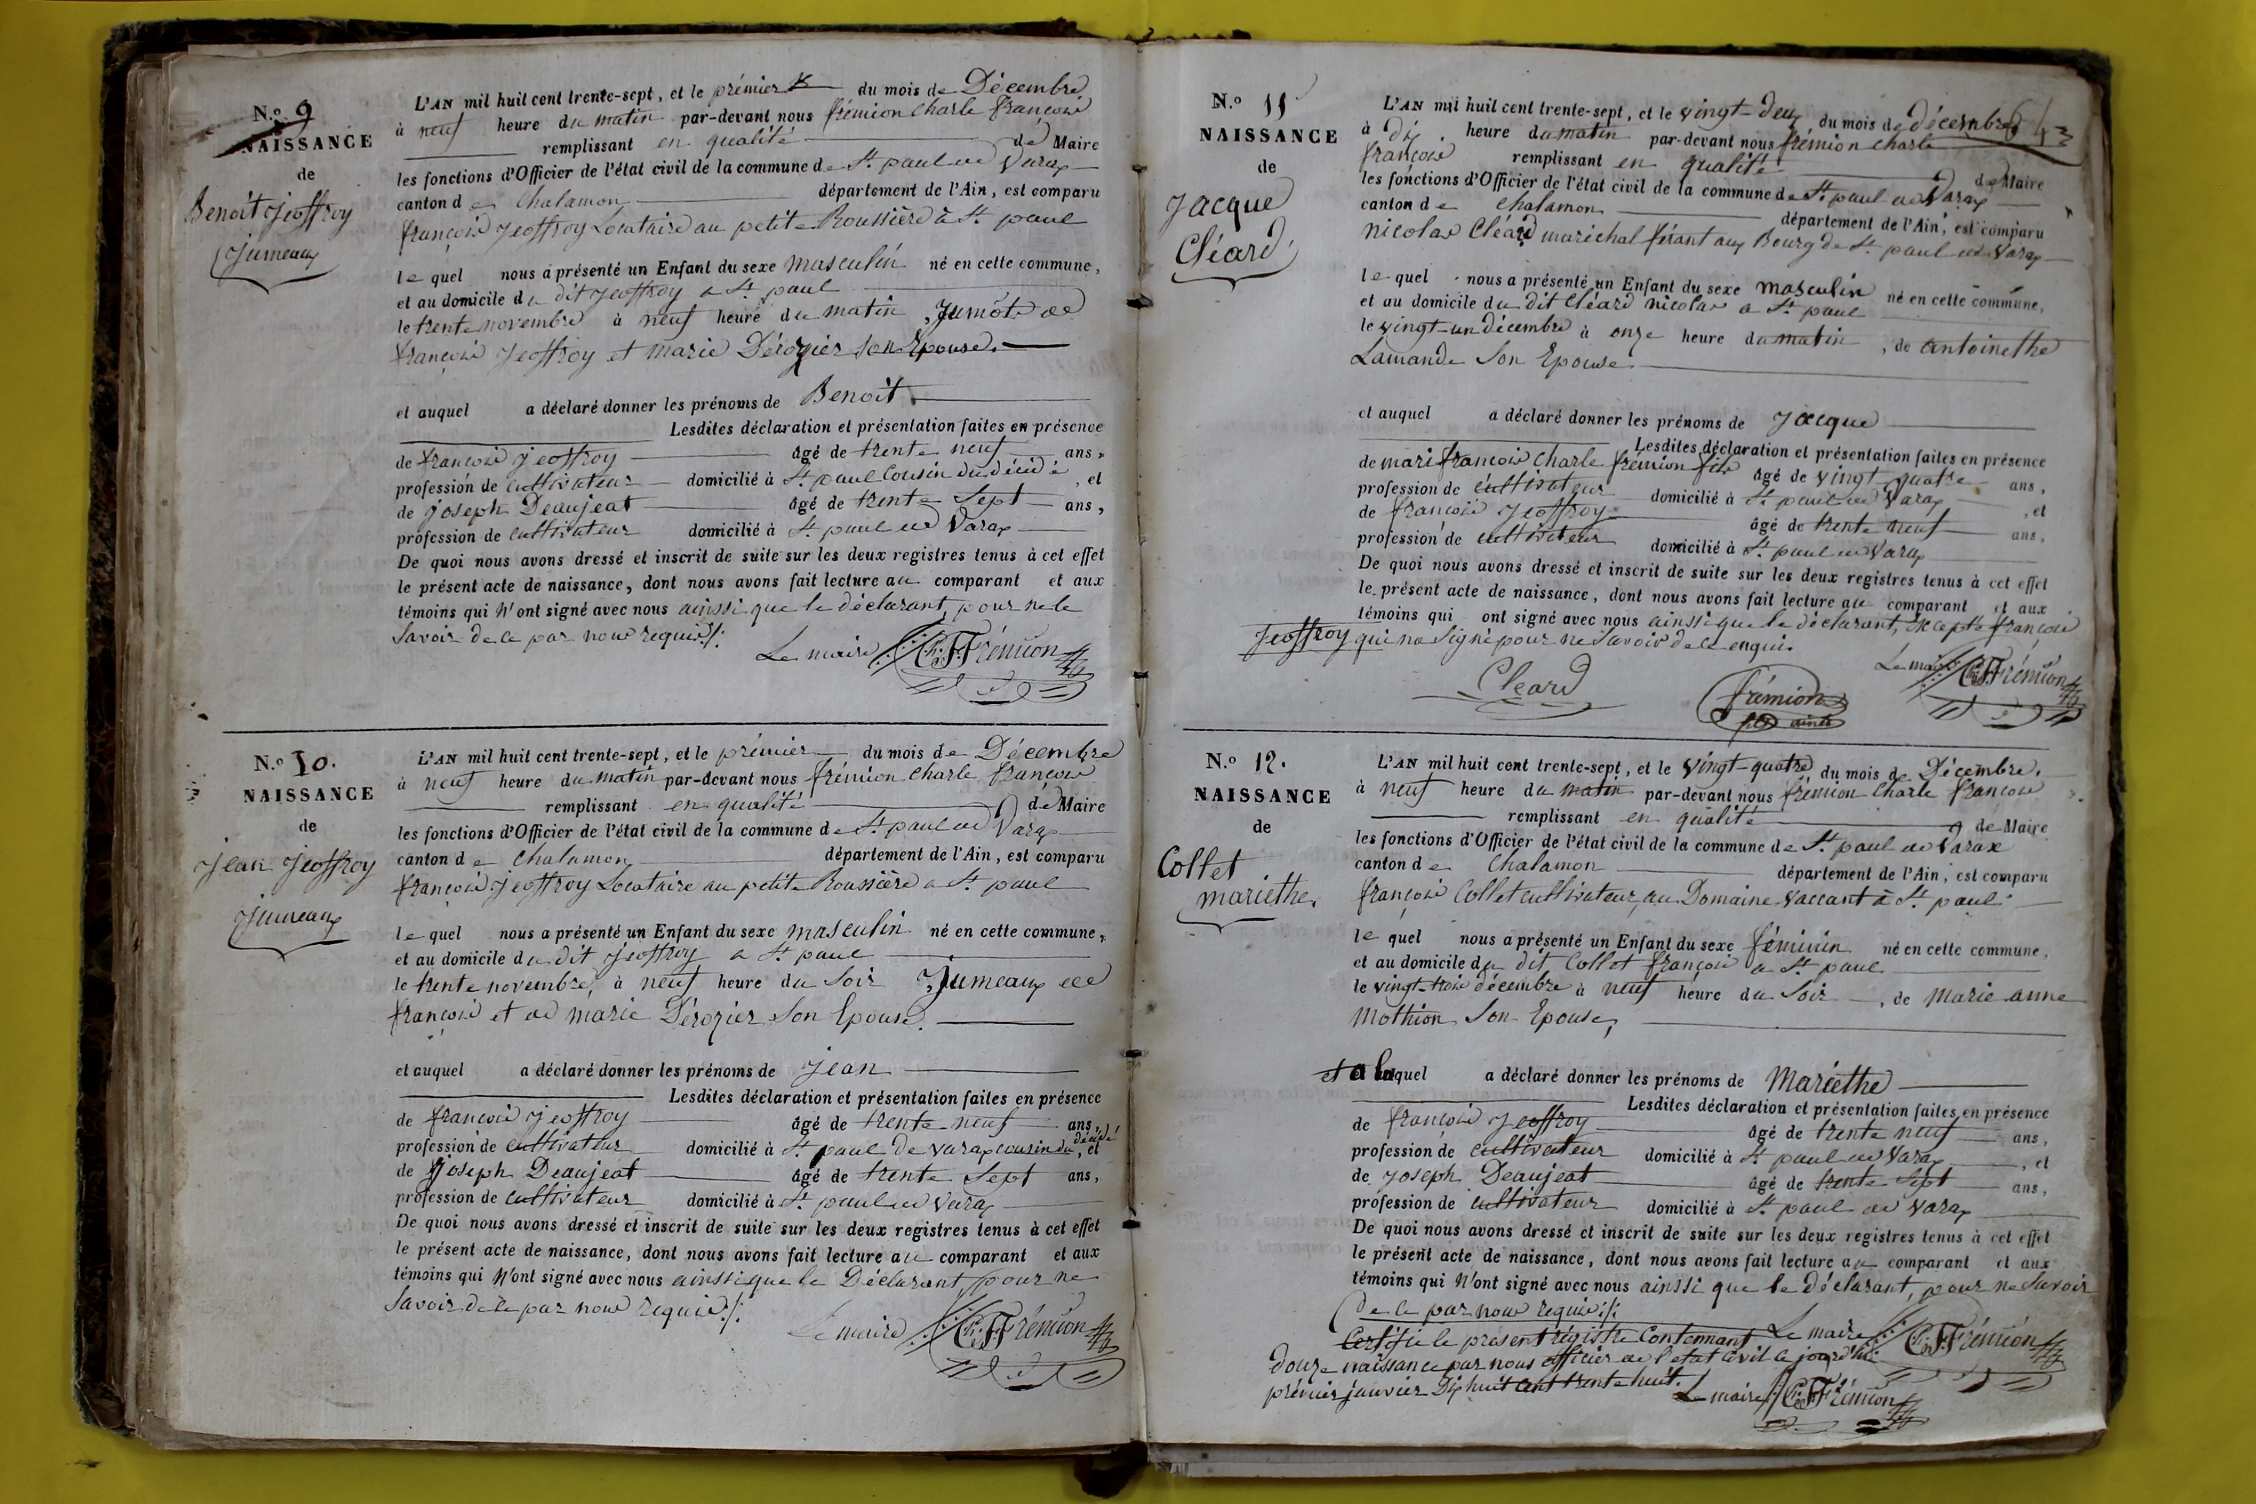 N.o 9
NAISSANCE
de
Benoit Jeoffroy
Jumeaux
L'AN mil huit cent trente-sept, et le prémier du mois de Décembre
à neuf heure du matin par-devant nous frémion Charle françois
remplissant en qualité de Maire
les fonctions d'Officier de l'état civil de la commune de St. paul de Varax
canton de Chalamon département de l'Ain, est comparu
françois Jeoffroy Locataire au petite Roussière à St. paul
le quel nous a présenté un Enfant du sexe masculin né en cette commune,
et au domicile du dit Jeoffroy a St. paul
le trente novembre à neuf heure du matin, Jumôt de
françois Jeoffroy et marie Dérozier son Epouse.
et auquel a déclaré donner les prénoms de Benoit
Lesdites déclaration et présentation faites en présence
de françois jeoffroy âgé de trente neuf ans,
profession de cultivateur domicilié à St. paul Cousin du décidé, et
de joseph Deaujeat âgé de trente Sept ans,
profession de cultivateur domicilié à St. paul de Varax
De quoi nous avons dressé et inscrit de suite sur les deux registres tenus à cet effet
le présent acte de naissance, dont nous avons fait lecture au comparant et aux
témoins qui N'ont signé avec nous ainssi que le déclarant, pour ne le
Savoir de ce par nous requis ./.
Le maire Ch. F. Frémion
N.o 10.
NAISSANCE
de
Jean Jeoffroy
Jumeaux
L'AN mil huit cent trente-sept, et le prémier du mois de Décembre
à neuf heure du matin par-devant nous frémion Charle françois
remplissant en qualité de Maire
les fonctions d'Officier de l'état civil de la commune de St. paul de Varax
canton de Chalamon département de l'Ain, est comparu
françois Jeoffroy Locataire au petite Roussière a St. paul
le quel nous a présenté un Enfant du sexe masculin né en cette commune,
et au domicile du dit Jeoffroy a St. paul
le trente novembre, à neuf heure du Soir, Jumeaux de
françois et de marie Dérozier Son Epouse.
et auquel a déclaré donner les prénoms de Jean
Lesdites déclaration et présentation faites en présence
de françois jeoffroy âgé de trente neuf ans,
profession de cultivateur domicilié à St. paul de Varax cousin du décidé, et
de Joseph Deaujeat âgé de trente Sept ans,
profession de cultivateur domicilié à St. paul de Varax
De quoi nous avons dressé et inscrit de suite sur les deux registres tenus à cet effet
le présent acte de naissance, dont nous avons fait lecture au comparant et aux
témoins qui N'ont signé avec nous ainssi que le Déclarant, pour ne
Savoir de ce par nous requis ./.
Le maire Ch. F. Frémion
N.o 11
NAISSANCE
de
Jacque
Cléard
L'AN mil huit cent trente-sept, et le vingt-deux du mois de décembre
à dix heure du matin par-devant nous frémion Charle
françois remplissant en qualité de Maire
les fonctions d'Officier de l'état civil de la commune de St. paul de Varax
canton de Chalamon département de l'Ain, est comparu
nicolas Cléard maréchal férant aux Bourg de St. paul de Varax
le quel nous a présenté un Enfant du sexe masculin né en cette commune,
et au domicile du dit Cléard nicolas a St. paul
le vingt-un décembre à onze heure du matin, de antoinethe
Lamande Son Epouse.
et auquel a déclaré donner les prénoms de Jacque
Lesdites déclaration et présentation faites en présence
de mari françois Charle frémion fils âgé de vingt quatre ans,
profession de cultivateur domicilié à St. paul de Varax, et
de françois Jeoffroy âgé de trente neuf ans,
profession de cultivateur domicilié à St. paul de Varax
De quoi nous avons dressé et inscrit de suite sur les deux registres tenus à cet effet
le présent acte de naissance, dont nous avons fait lecture au comparant et aux
témoins qui ont signé avec nous ainssi que le déclarant, Excepté françois
Jeoffroy qui na Signé pour ne Savoir de ce enquis.
Le maire Ch. F. Frémion
Cleard
frémion
fils ainé
N.o 12.
NAISSANCE
de
Collet
mariethe.
L'AN mil huit cent trente-sept, et le vingt-quatre du mois de Décembre.
à neuf heure du matin par-devant nous frémion Charle françois
remplissant en qualité de Maire
les fonctions d'Officier de l'état civil de la commune de St. paul de Varax
canton de Chalamon département de l'Ain, est comparu
françois Collet cultivateur, au Domaine Vaccant à St. paul
le quel nous a présenté un Enfant du sexe féminin né en cette commune,
et au domicile du dit Collet françois a St. paul
le vingt-trois décembre à neuf heure du Soir, de marie anne
Mothion Son Epouse,
et a laquel a déclaré donner les prénoms de Mariethe
Lesdites déclaration et présentation faites en présence
de françois Jeoffroy âgé de trente neuf ans,
profession de cultivateur domicilié à St. paul de Varax, et
de Joseph Deaujeat âgé de trente Sept ans,
profession de cultivateur domicilié à St. paul de Varax
De quoi nous avons dressé et inscrit de suite sur les deux registres tenus à cet effet
le présent acte de naissance, dont nous avons fait lecture au comparant et aux
témoins qui N'ont signé avec nous ainssi que le déclarant, pour ne Savoir
de ce par nous requis ./.
Certifié le présent régistre Contennant Le maire Ch. F. Frémion
douze naissance par nous officier de l'etat civil ce jourd'hui
prémier janvier Dix huit cent trente huit.
Le maire Ch. F. Frémion